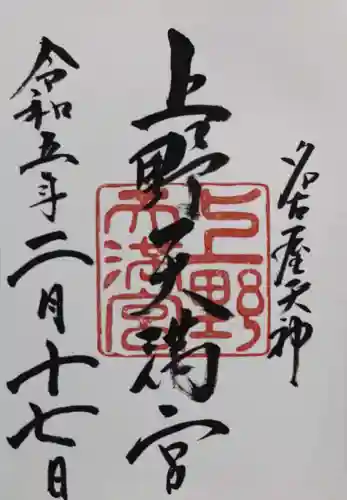 名古屋天神
上野天満宮
上野天満宮
令和五年二月十七日